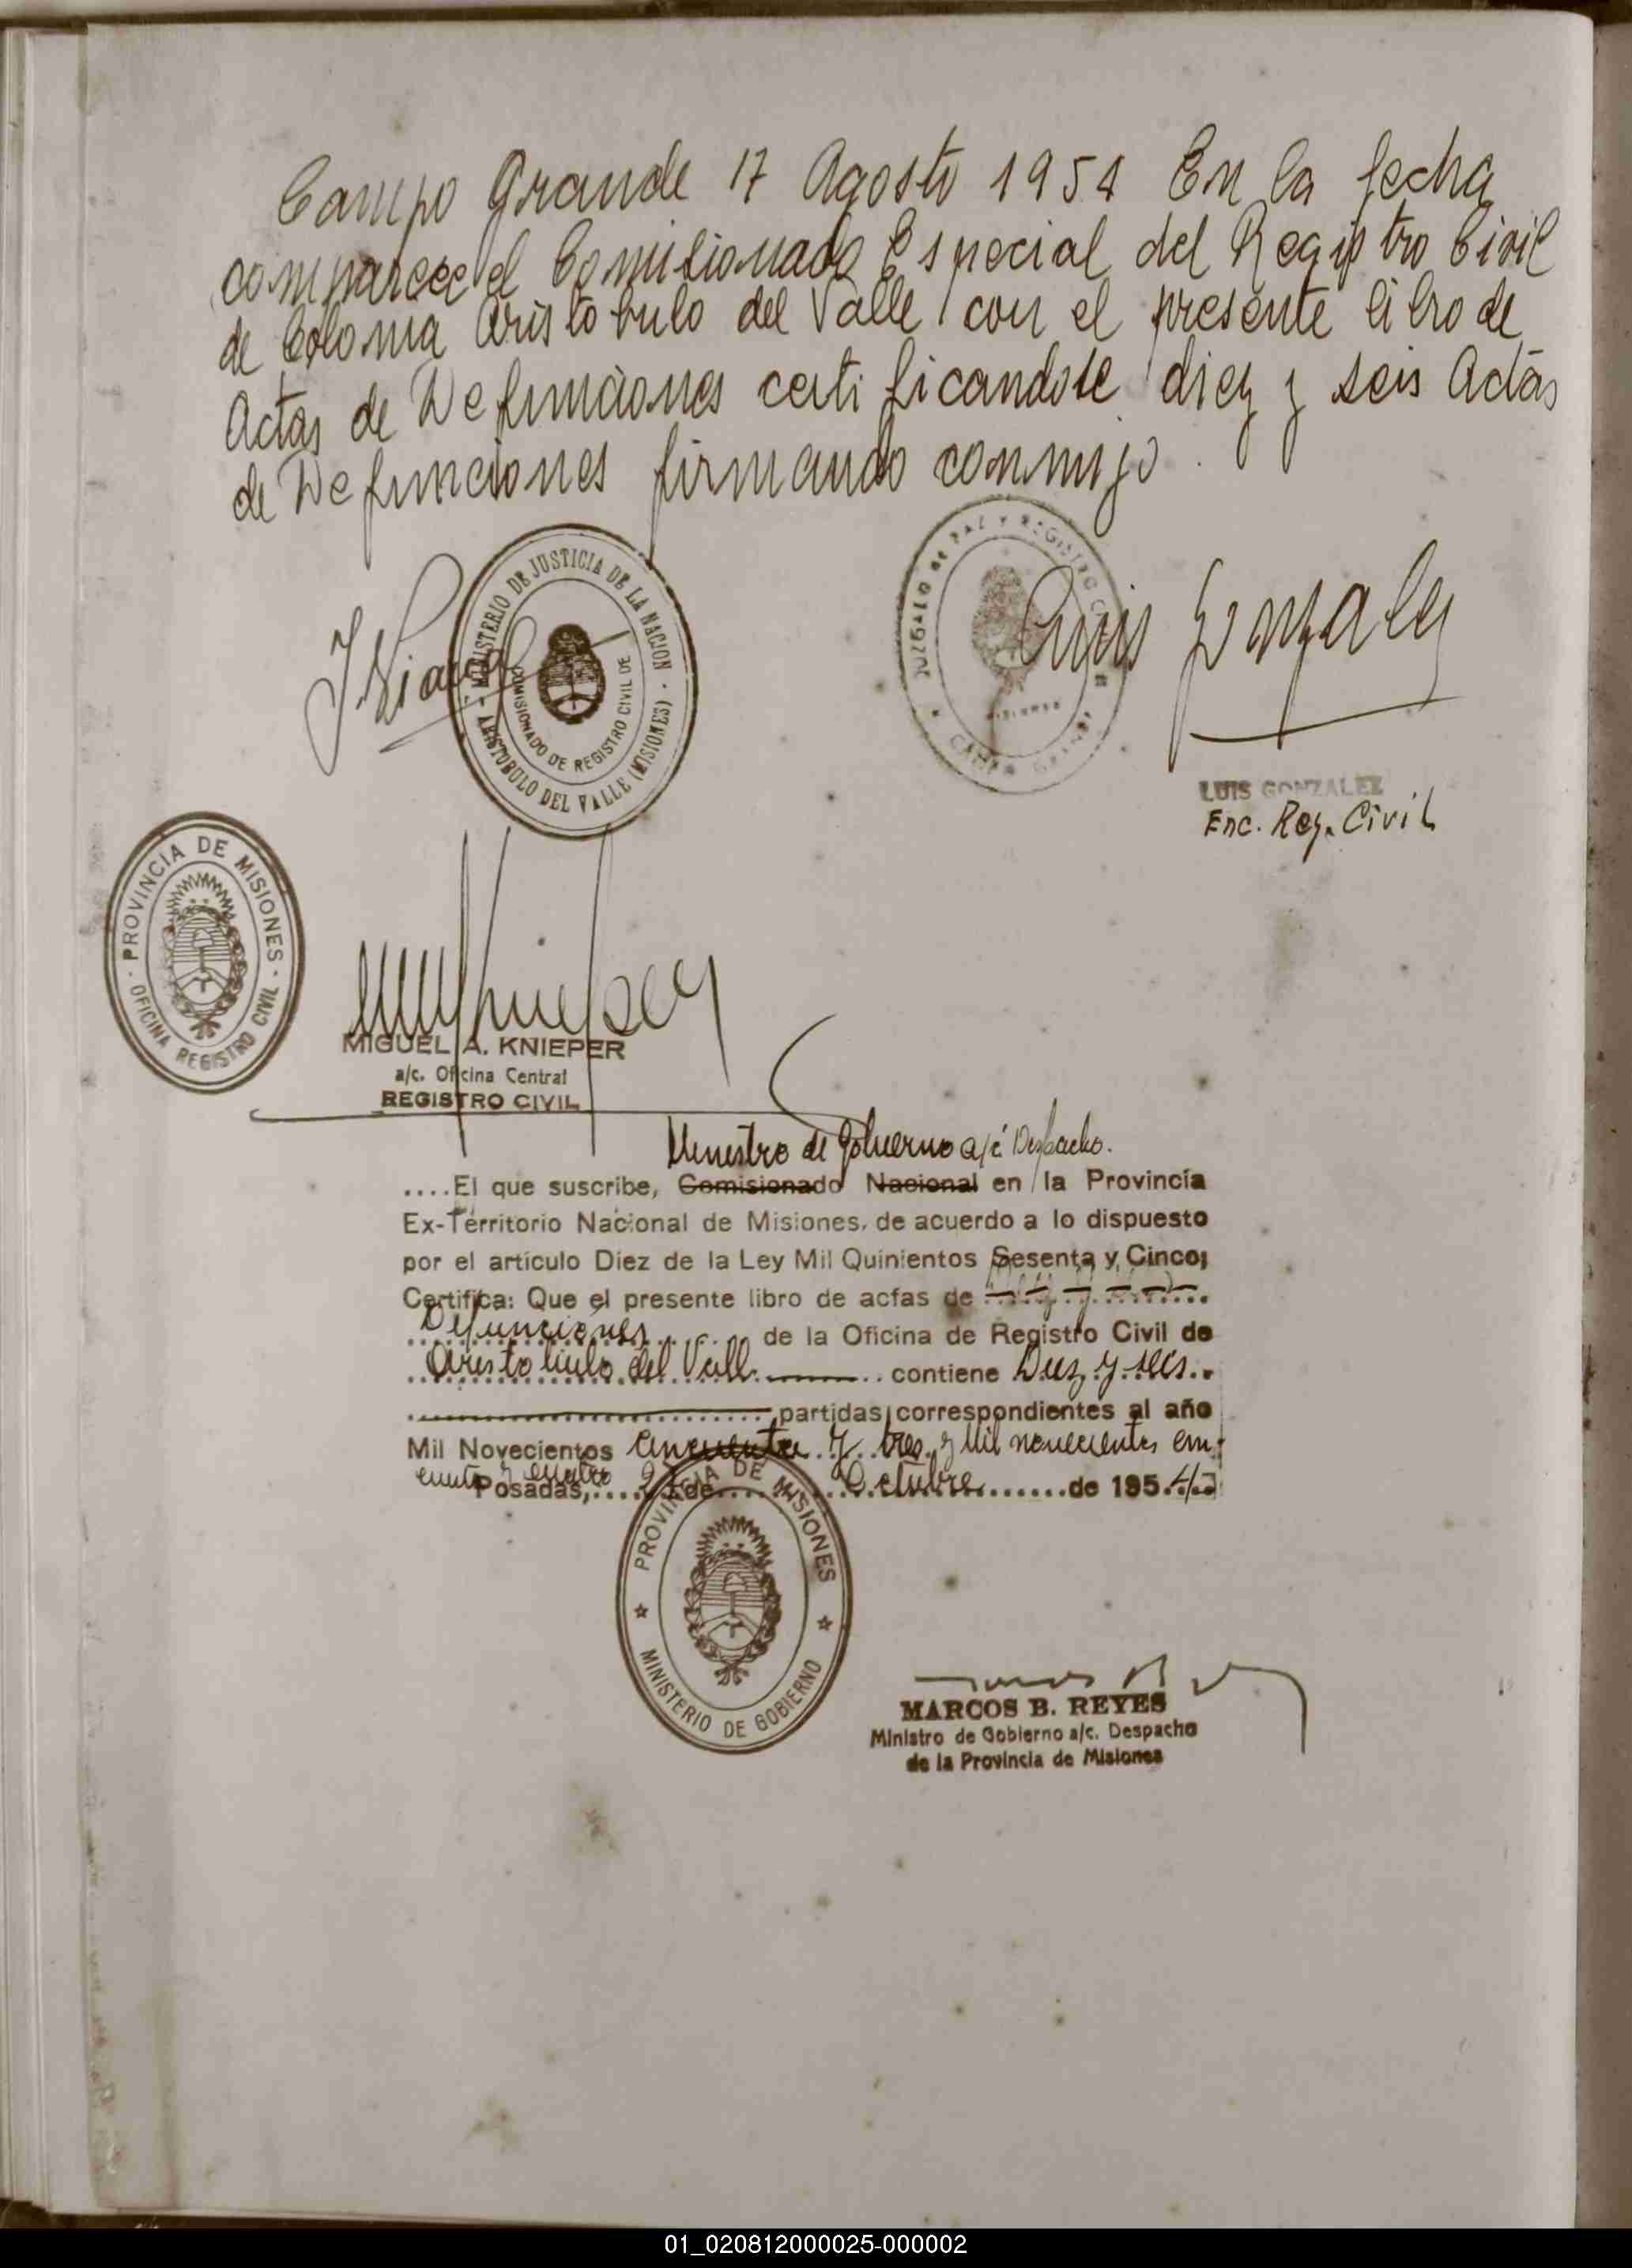 Campo Grande 17 Agosto 1954 En la fecha
comparece el Comisionado Especial del Registro Civil
de Colonia Aristobulo del Valle con el presente libro de
Actas de Defunciones certificandose diez y seis Actas
de Defunciones firmando conmigo.
MINISTERIO DE JUSTICIA DE LA NACION
COMISIONADO DE REGISTRO CIVIL DE
ARISTOBULO DEL VALLE (MISIONES)
JUZGADO DE PAZ Y REGISTRO
MISIONES
CAMPO GRANDE
Luis Gonzalez
LUIS GONZALEZ
Enc. Reg. Civil
PROVINCIA DE MISIONES
OFICINA REGISTRO CIVIL
MIGUEL A. KNIEPER
a/c. Oficina Central
REGISTRO CIVIL
Ministro de Gobierno a/c Despacho.
....El que suscribe, Comisionado Nacional en la Provincia
Ex-Territorio Nacional de Misiones, de acuerdo a lo dispuesto
por el artículo Diez de la Ley Mil Quinientos Sesenta y Cinco;
Certifica: Que el presente libro de actas de
Defunciones de la Oficina de Registro Civil de
Aristobulo del Valle contiene Diez y seis
partidas correspondientes al año
Mil Novecientos Cincuenta y tres y Mil novecientos cin-
cuenta y cuatro
Posadas, de Octubre de 1954
PROVINCIA DE MISIONES
MINISTERIO DE GOBIERNO
MARCOS B. REYES
Ministro de Gobierno a/c. Despacho
de la Provincia de Misiones
01_020812000025-000002